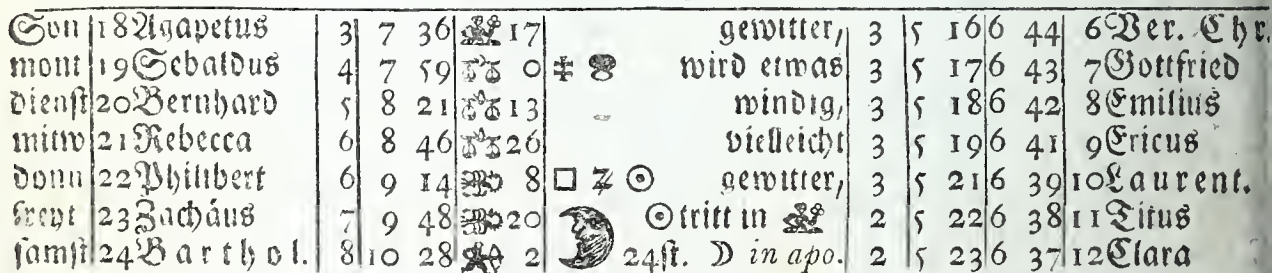 Son 18 Agapetus 3 7 36 17 gewitter, 3 5 16 6 44 6 Ver. Chr.
mont 19 Sebaldus 4 7 59 0 wird etwas 3 5 17 6 43 7 Gottfried
dienst 20 Bernhard 5 8 21 13 windig, 3 5 18 6 42 8 Emilius
mitw 21 Rebecca 6 8 46 26 vielleicht 3 5 19 6 41 9 Ericus
donn 22 Philibert 6 9 14 8 □ ♃ ☉ gewitter, 3 5 21 6 39 10 Laurent.
freyt 23 Zachäus 7 9 48 20 ☉ tritt in 2 5 22 6 38 11 Titus
samst 24 Barthol. 8 10 28 2 24st. ☽ in apo. 2 5 23 6 37 12 Clara